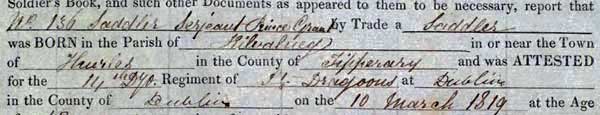 Soldier's Book, and such other Documents as appeared to them to be necessary, report that
No. 136 Saddler Serjeant Prince Grant by Trade a Saddler
was BORN in the Parish of in or near the Town
of Thurles in the County of Tipperary and was ATTESTED
for the 14th Regiment of Lt. Dragoons at Dublin
in the County of Dublin on the 10 March 1819 at the Age